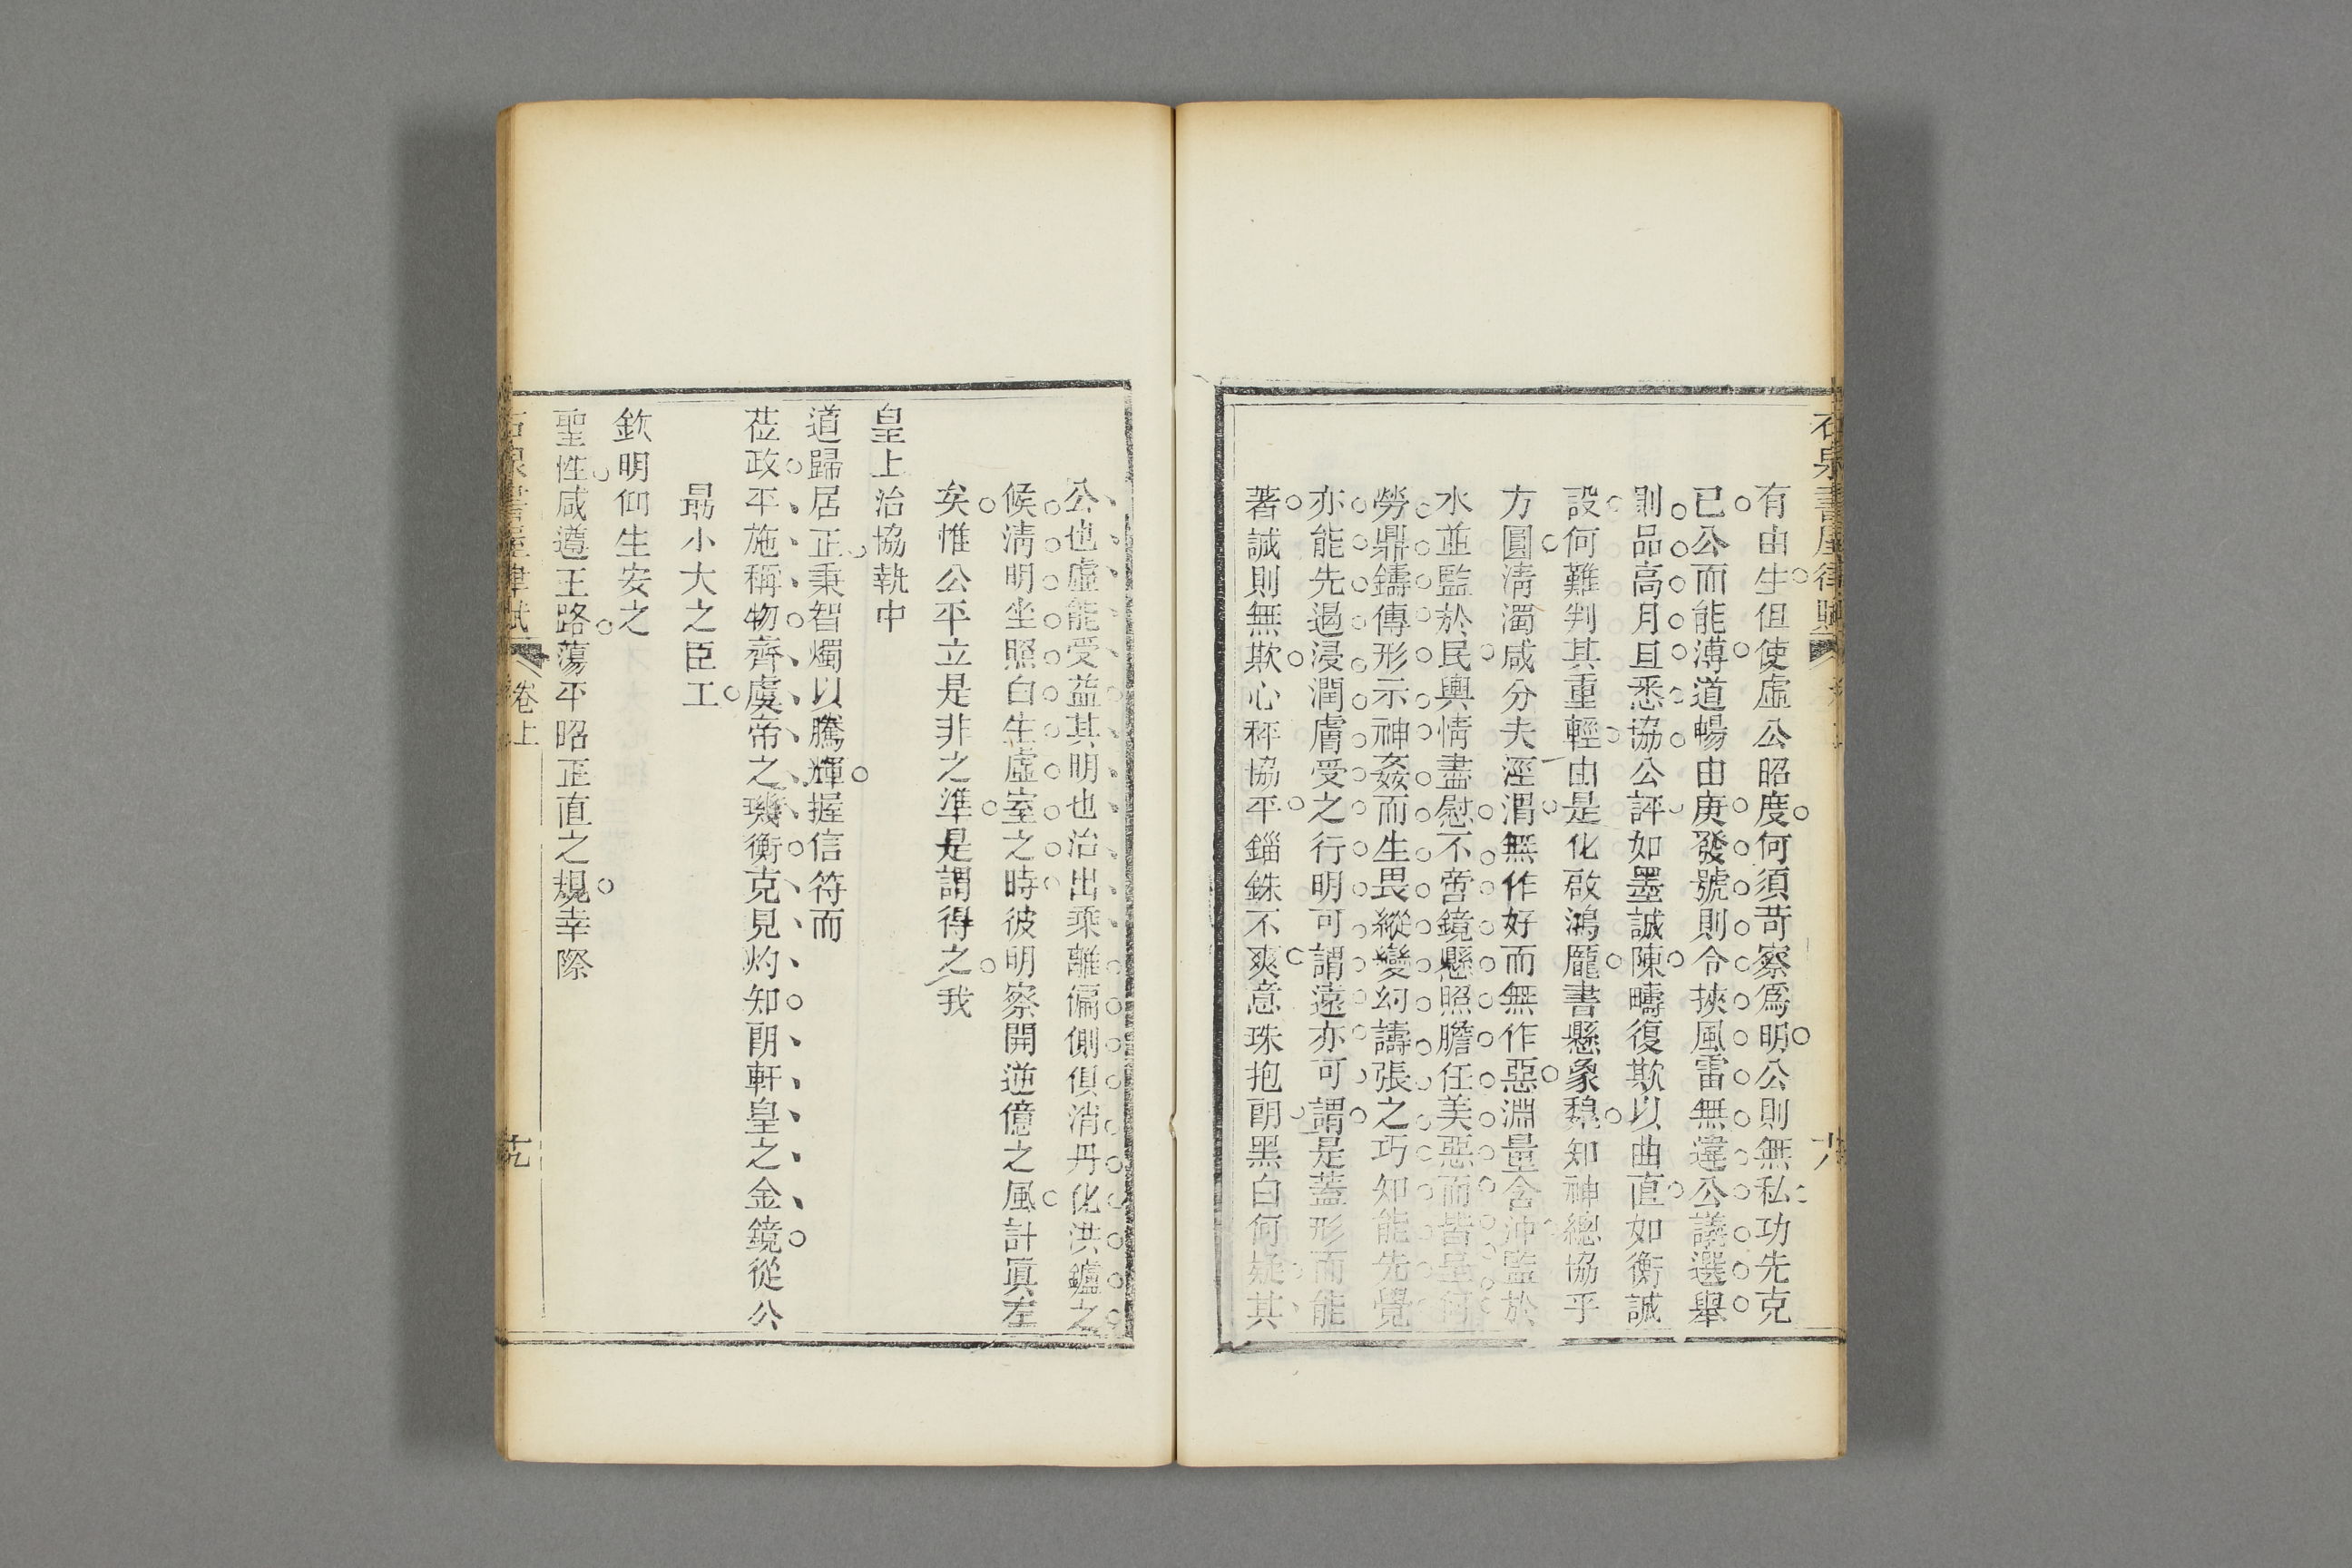 石泉書屋律賦
有由生但使虛公昭度何須苛察爲明公則無私功先克
已公而能溥道暢由庚發號則令挾風雷無違公議選舉
則品高月旦悉協公評如墨誠陳疇復欺以曲直如衡誠
設何難判其重輕由是化啟鴻龐書懸象魏知神總協乎
方圓淸濁咸分夫涇渭無作好而無作惡淵量含沖監於
水並監於民輿情盡慰不啻鏡懸照膽任美惡而皆呈何
勞鼎鑄傳形示神姦而生畏縱變幻譸張之巧知能先覺
亦能先遏浸潤膚受之行明可謂遠亦可謂是蓋形而能
著誠則無欺心秤協平錙銖不爽意珠抱朗黑白何疑其
公也虛能受益其明也治出乘離偏側俱消丹化洪鑪之
候淸明坐照白生虛室之時彼明察開逆億之風計眞左
矣惟公平立是非之準是謂得之我
皇上治協執中
道歸居正秉智燭以騰輝握信符而
莅政平施稱物齊虞帝之璣衡克見灼知朗軒皇之金鏡從公
最小大之臣工
欽明仰生安之
聖性咸遵王路蕩平昭正直之規幸際
石泉書屋律賦 卷上